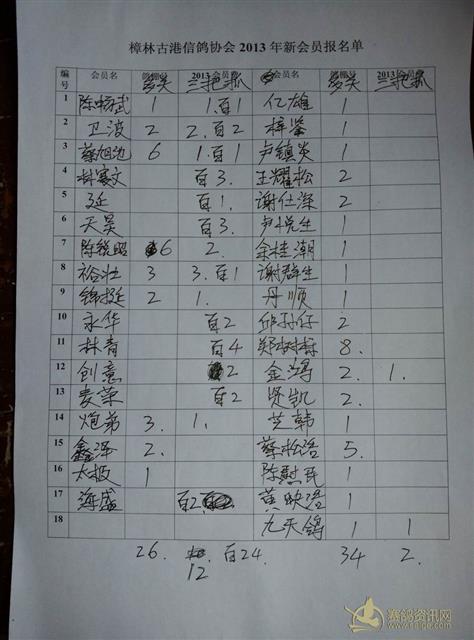 樟林古港信鸽协会2013年新会员报名单
编号 会员名 多关 2013 三把抓 会员名 多关 三把抓
1 陈畅武 1 1.百1 仁雄 1
2 卫波 2 2.百2 梓鉴 1
3 蔡旭池 6 1.百1 卢镇炎 1
4 林赛文 百3. 王耀松 2
5 廷 百1. 谢仕深 2
6 天昊 百3. 尹悦生 1
7 陈锐昭 6 2. 余桂潮 1
8 裕壮 3 3.百1 谢群生 1
9 锦挺 2 1. 丹顺 1
10 永华 百2 邱孙仔 2
11 林青 百4 郑树 8.
12 创意 2 金鸿 2. 1.
13 麦荣 百2 贤凯 2.
14 炮弟 3. 1. 芝韩 1
15 鑫泽 2. 蔡松浩 5.
16 太极 1 陈慰民 1
17 海盛 百2 黄映浩 1
18 九天鸽 1 1
26. 百24. 34 2.
12
赛鸽资讯网